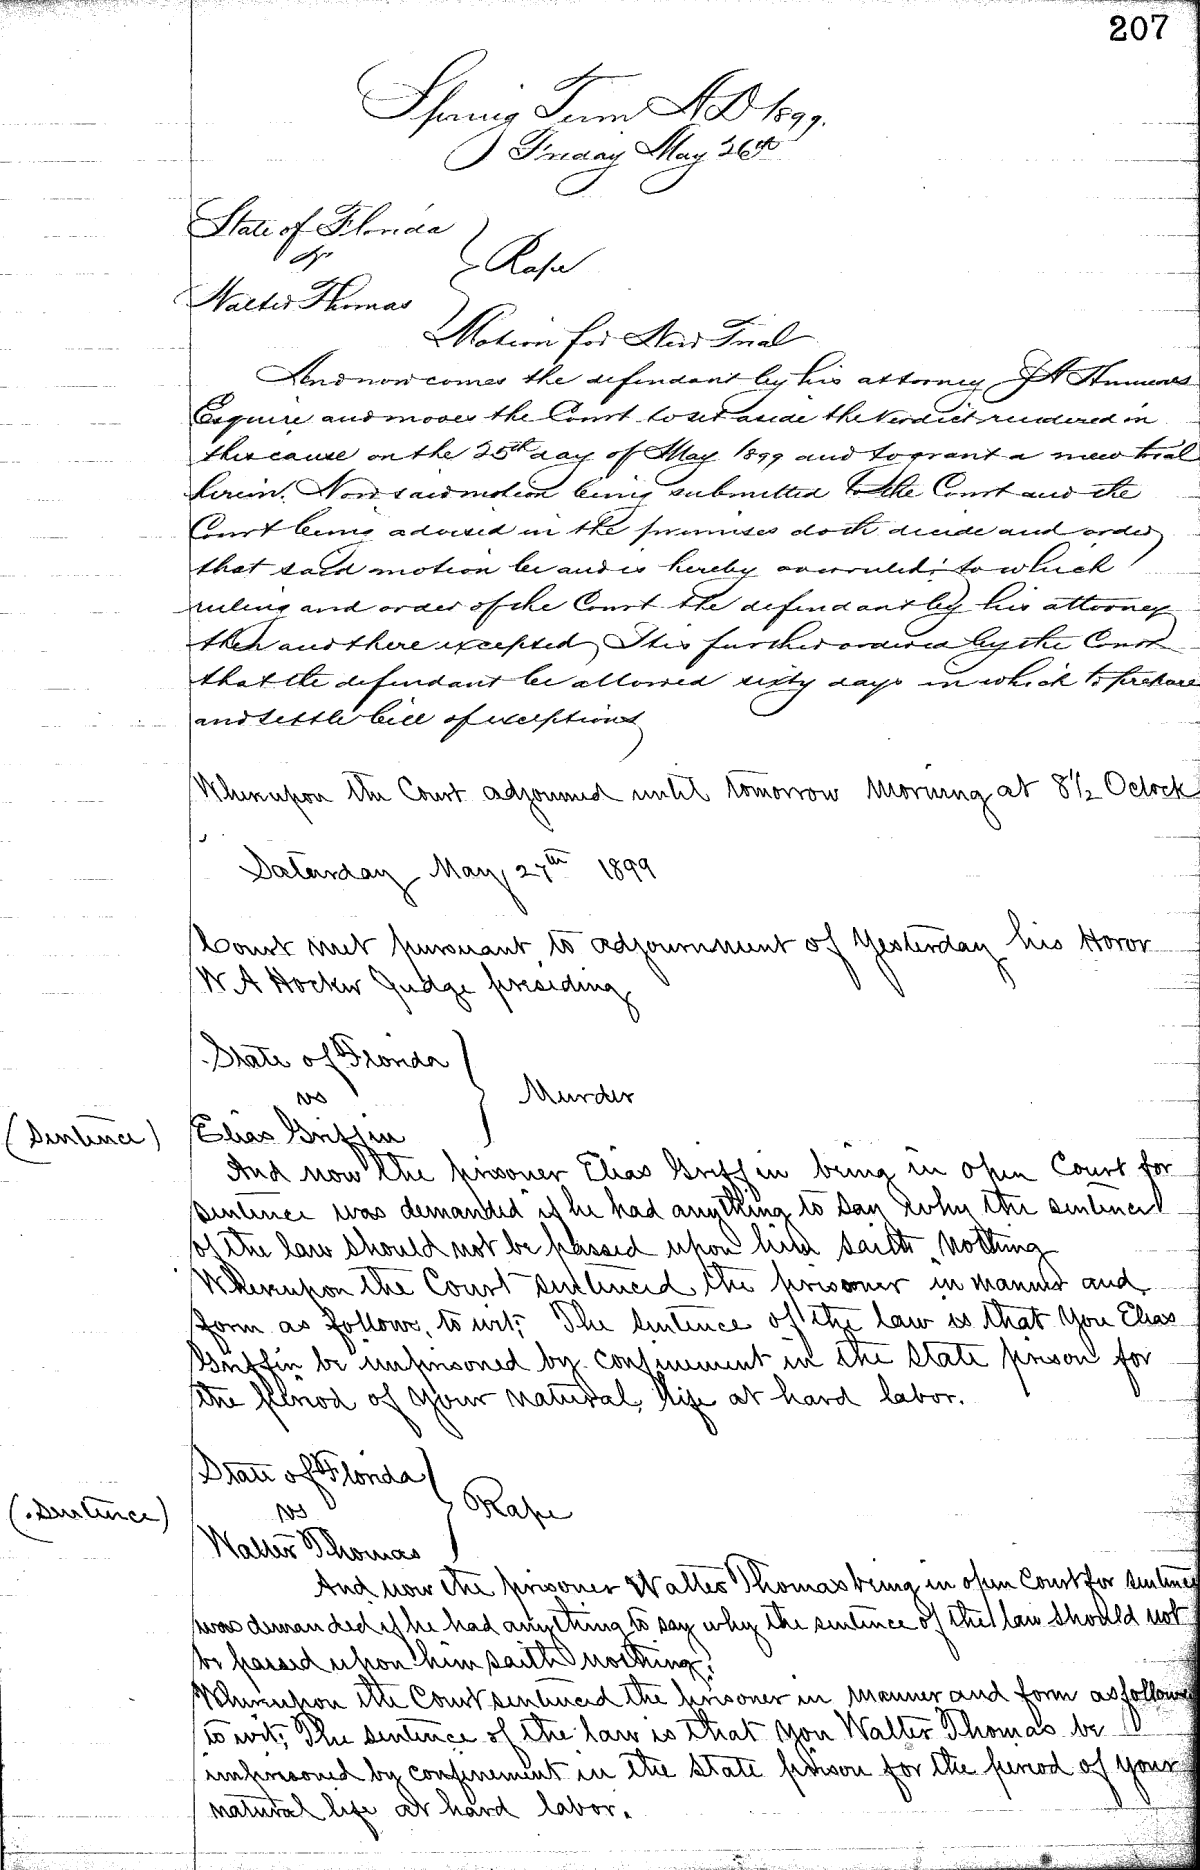 207
Spring Term A D 1899.
Friday May 26th
State of Florida
vs
Rape
Walter Thomas
Motion for New Trial
And now comes the defendant by his attorney
Esquire and moves the Court to set aside the Verdict rendered in
this cause on the 25th day of May 1899 and to grant a new trial
herein. Now said motion being submitted to the Court and the
Court being advised in the premises doth decide and order
that said motion be and is hereby overruled; to which
ruling and order of the Court the defendant by his attorney
then and there excepted It is further ordered by the Court
that the defendant be allowed sixty days in which to prepare
and settle bill of exceptions
Whereupon the Court adjourned until tomorrow Morning at 8 1/2 Oclock
Saturday May 27th 1899
Court met pursuant to adjournment of Yesterday his Honor
W. A Hocker Judge presiding
State of Florida
vs
Murder
(Sentence)
Elias Griffin
And now the prisoner Elias Griffin being in open Court for
sentence was demanded if he had anything to say why the sentence
of the law should not be passed upon him saith Nothing
Whereupon the Court sentenced the prisoner in manner and
form as follows, to wit; The sentence of the law is that You Elias
Griffin be imprisoned by confinement in the State prison for
the period of your natural life at hard labor.
State of Florida
vs
Rape
(Sentence)
Walter Thomas
And now the prisoner Walter Thomas being in open Court for sentence
was demanded if he had anything to say why the sentence of the law should not
be passed upon him saith nothing;
Whereupon the Court sentenced the prisoner in manner and form as follows
to wit; The sentence of the law is that you Walter Thomas be
imprisoned by confinement in the State prison for the period of your
natural life at hard labor.